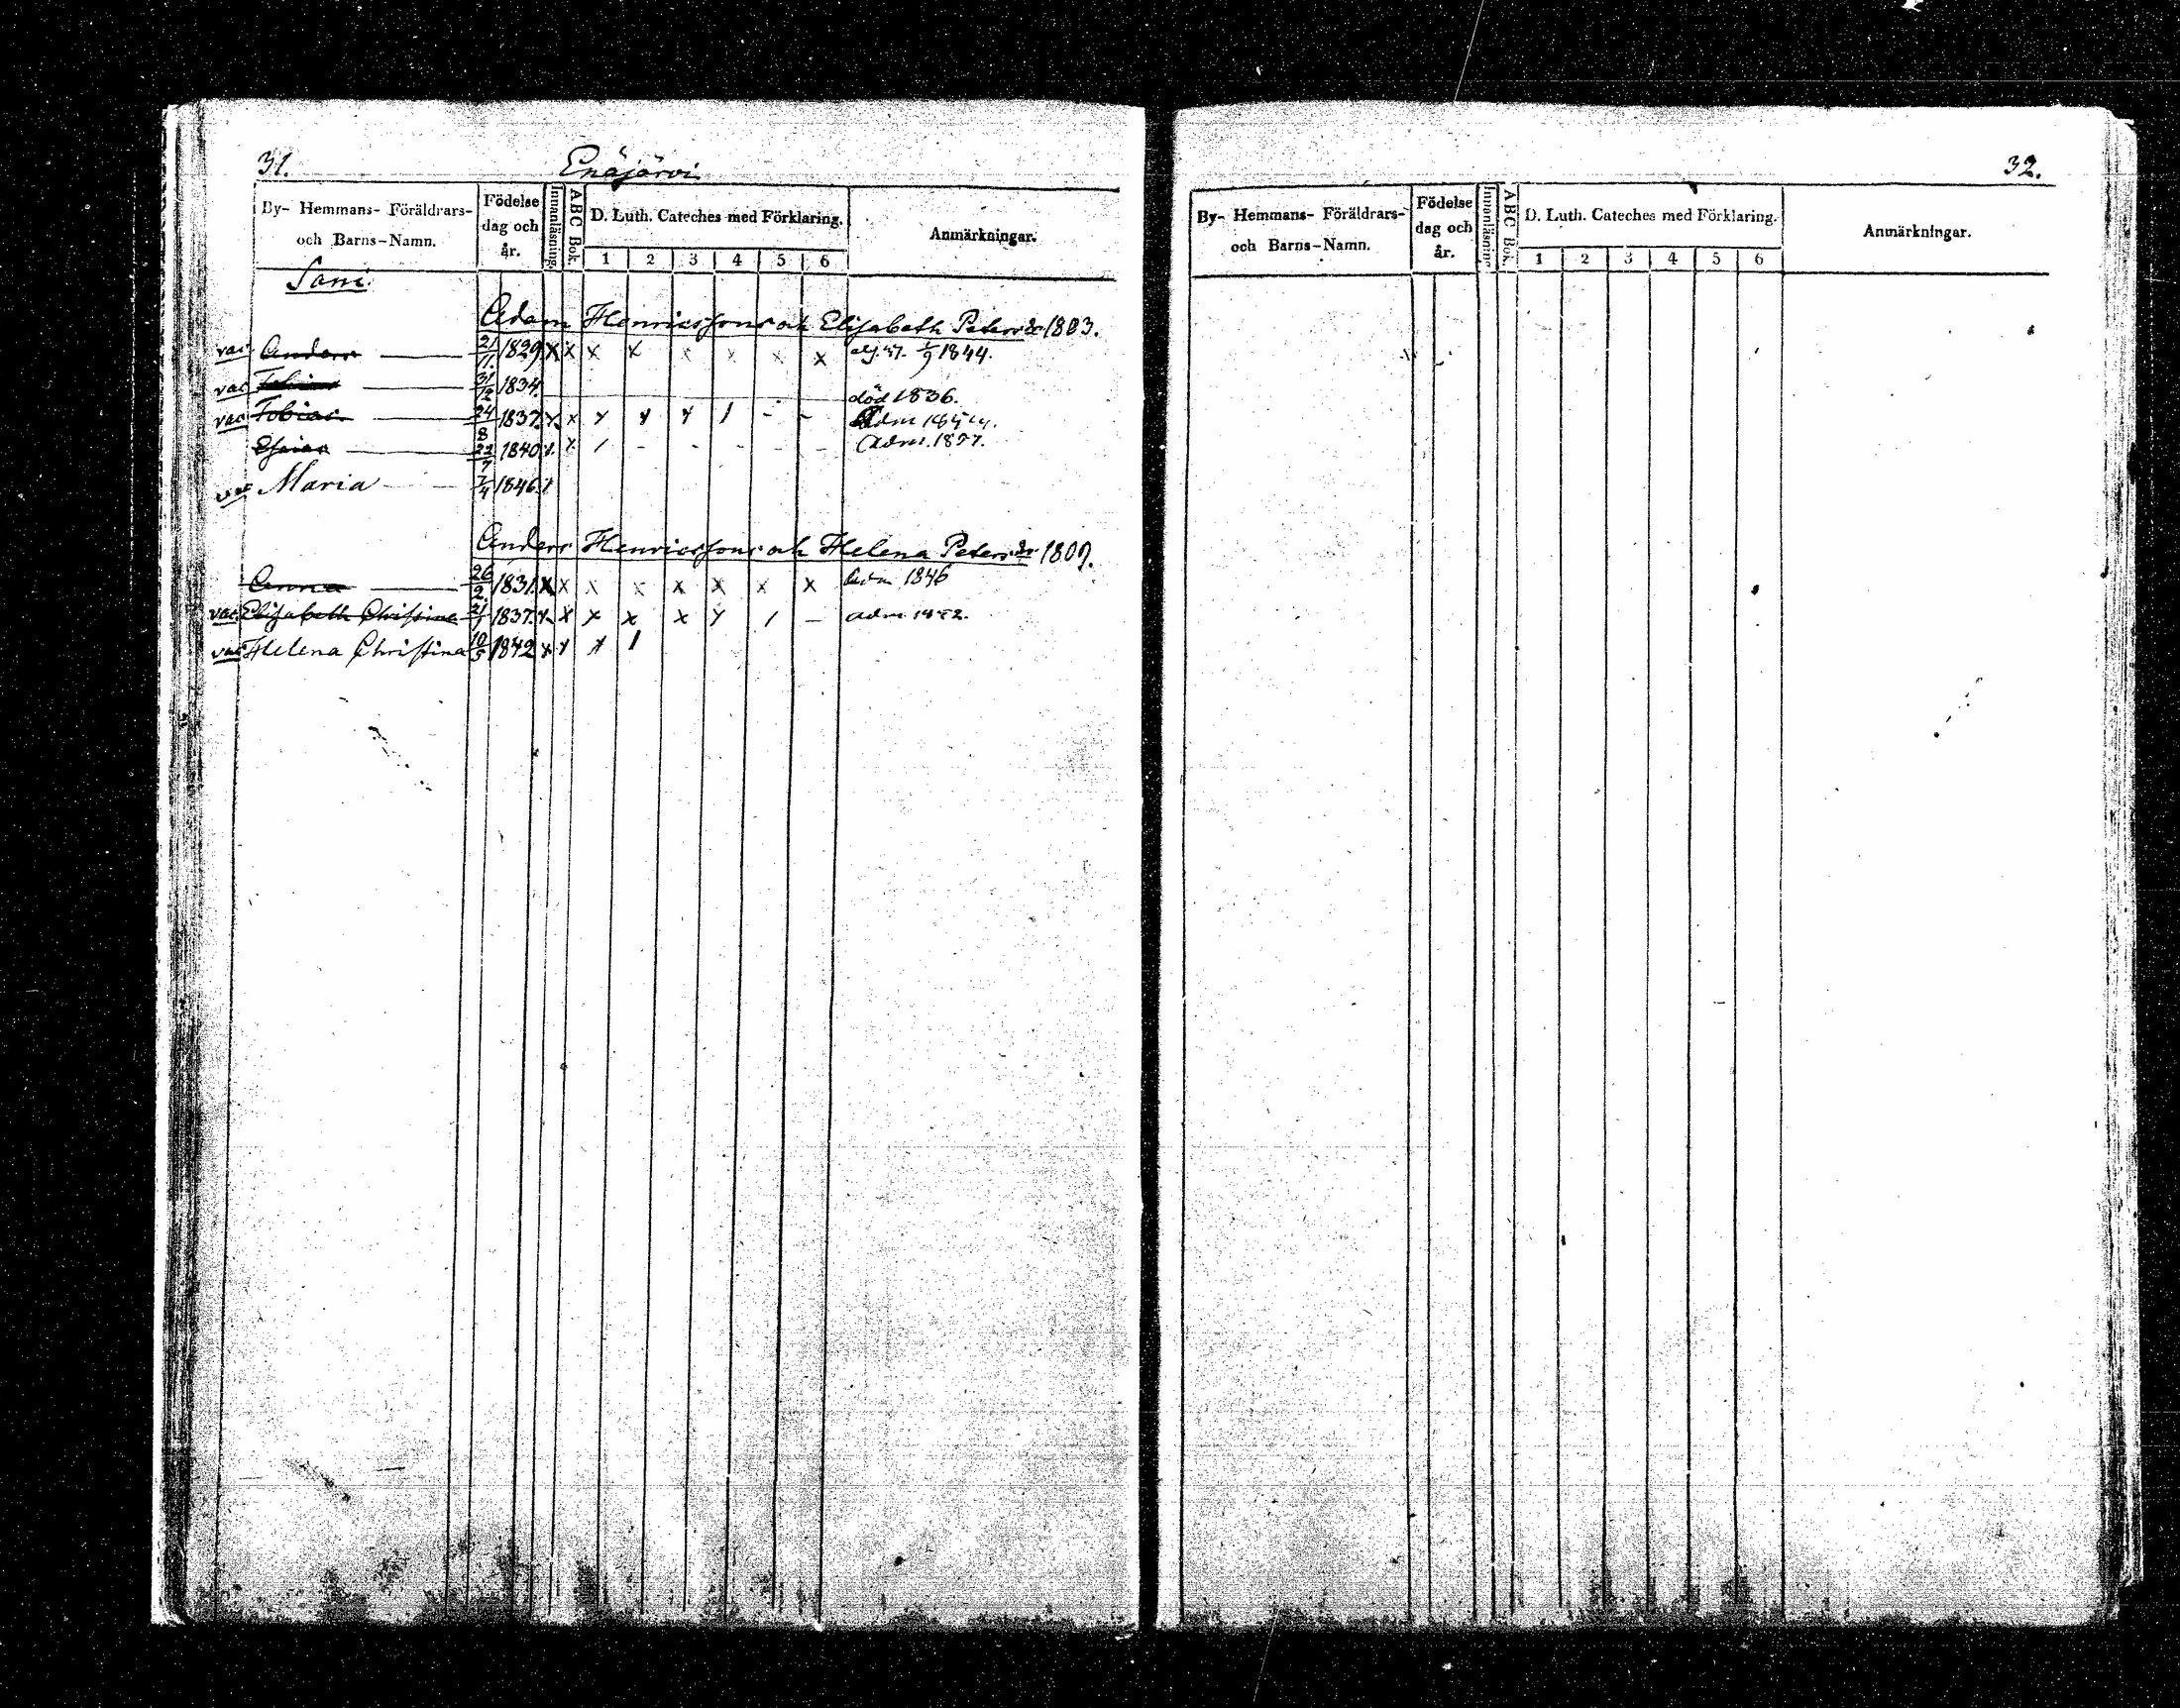 31.
Enäjärvi
By- Hemmans- Föräldrars- och Barns-Namn.
Födelse dag och år.
Innanläsning.
ABC Bok.
D. Luth. Cateches med Förklaring.
1 2 3 4 5 6
Anmärkningar.
Sani
Adam Henricssons och Elisabeth Petersdr 1803.
vac Anders 21/11. 1829. x x x x x x x x 1/9 1844.
vac 31/12 1834. död 1836.
vac Tobias 24/8 1837. x x x x x / - - Adm
Esaias 22/7 1840 x x / - - - - - Adm. 1857.
vac Maria 7/4 1846. x
Anders Henricssons och Helena Petersdr 1807.
Anna 26/2. 1831. x x x x x x x x Adm 1846
vac. Elisabeth Christina 21/1 1837. x x x x x x / - adm 1852.
vac Helena Christina 10/5 1842 x x x /
32.
By- Hemmans- Föräldrars- och Barns-Namn.
Födelse dag och år.
Innanläsning
ABC Bok.
D. Luth. Cateches med Förklaring.
1 2 3 4 5 6
Anmärkningar.